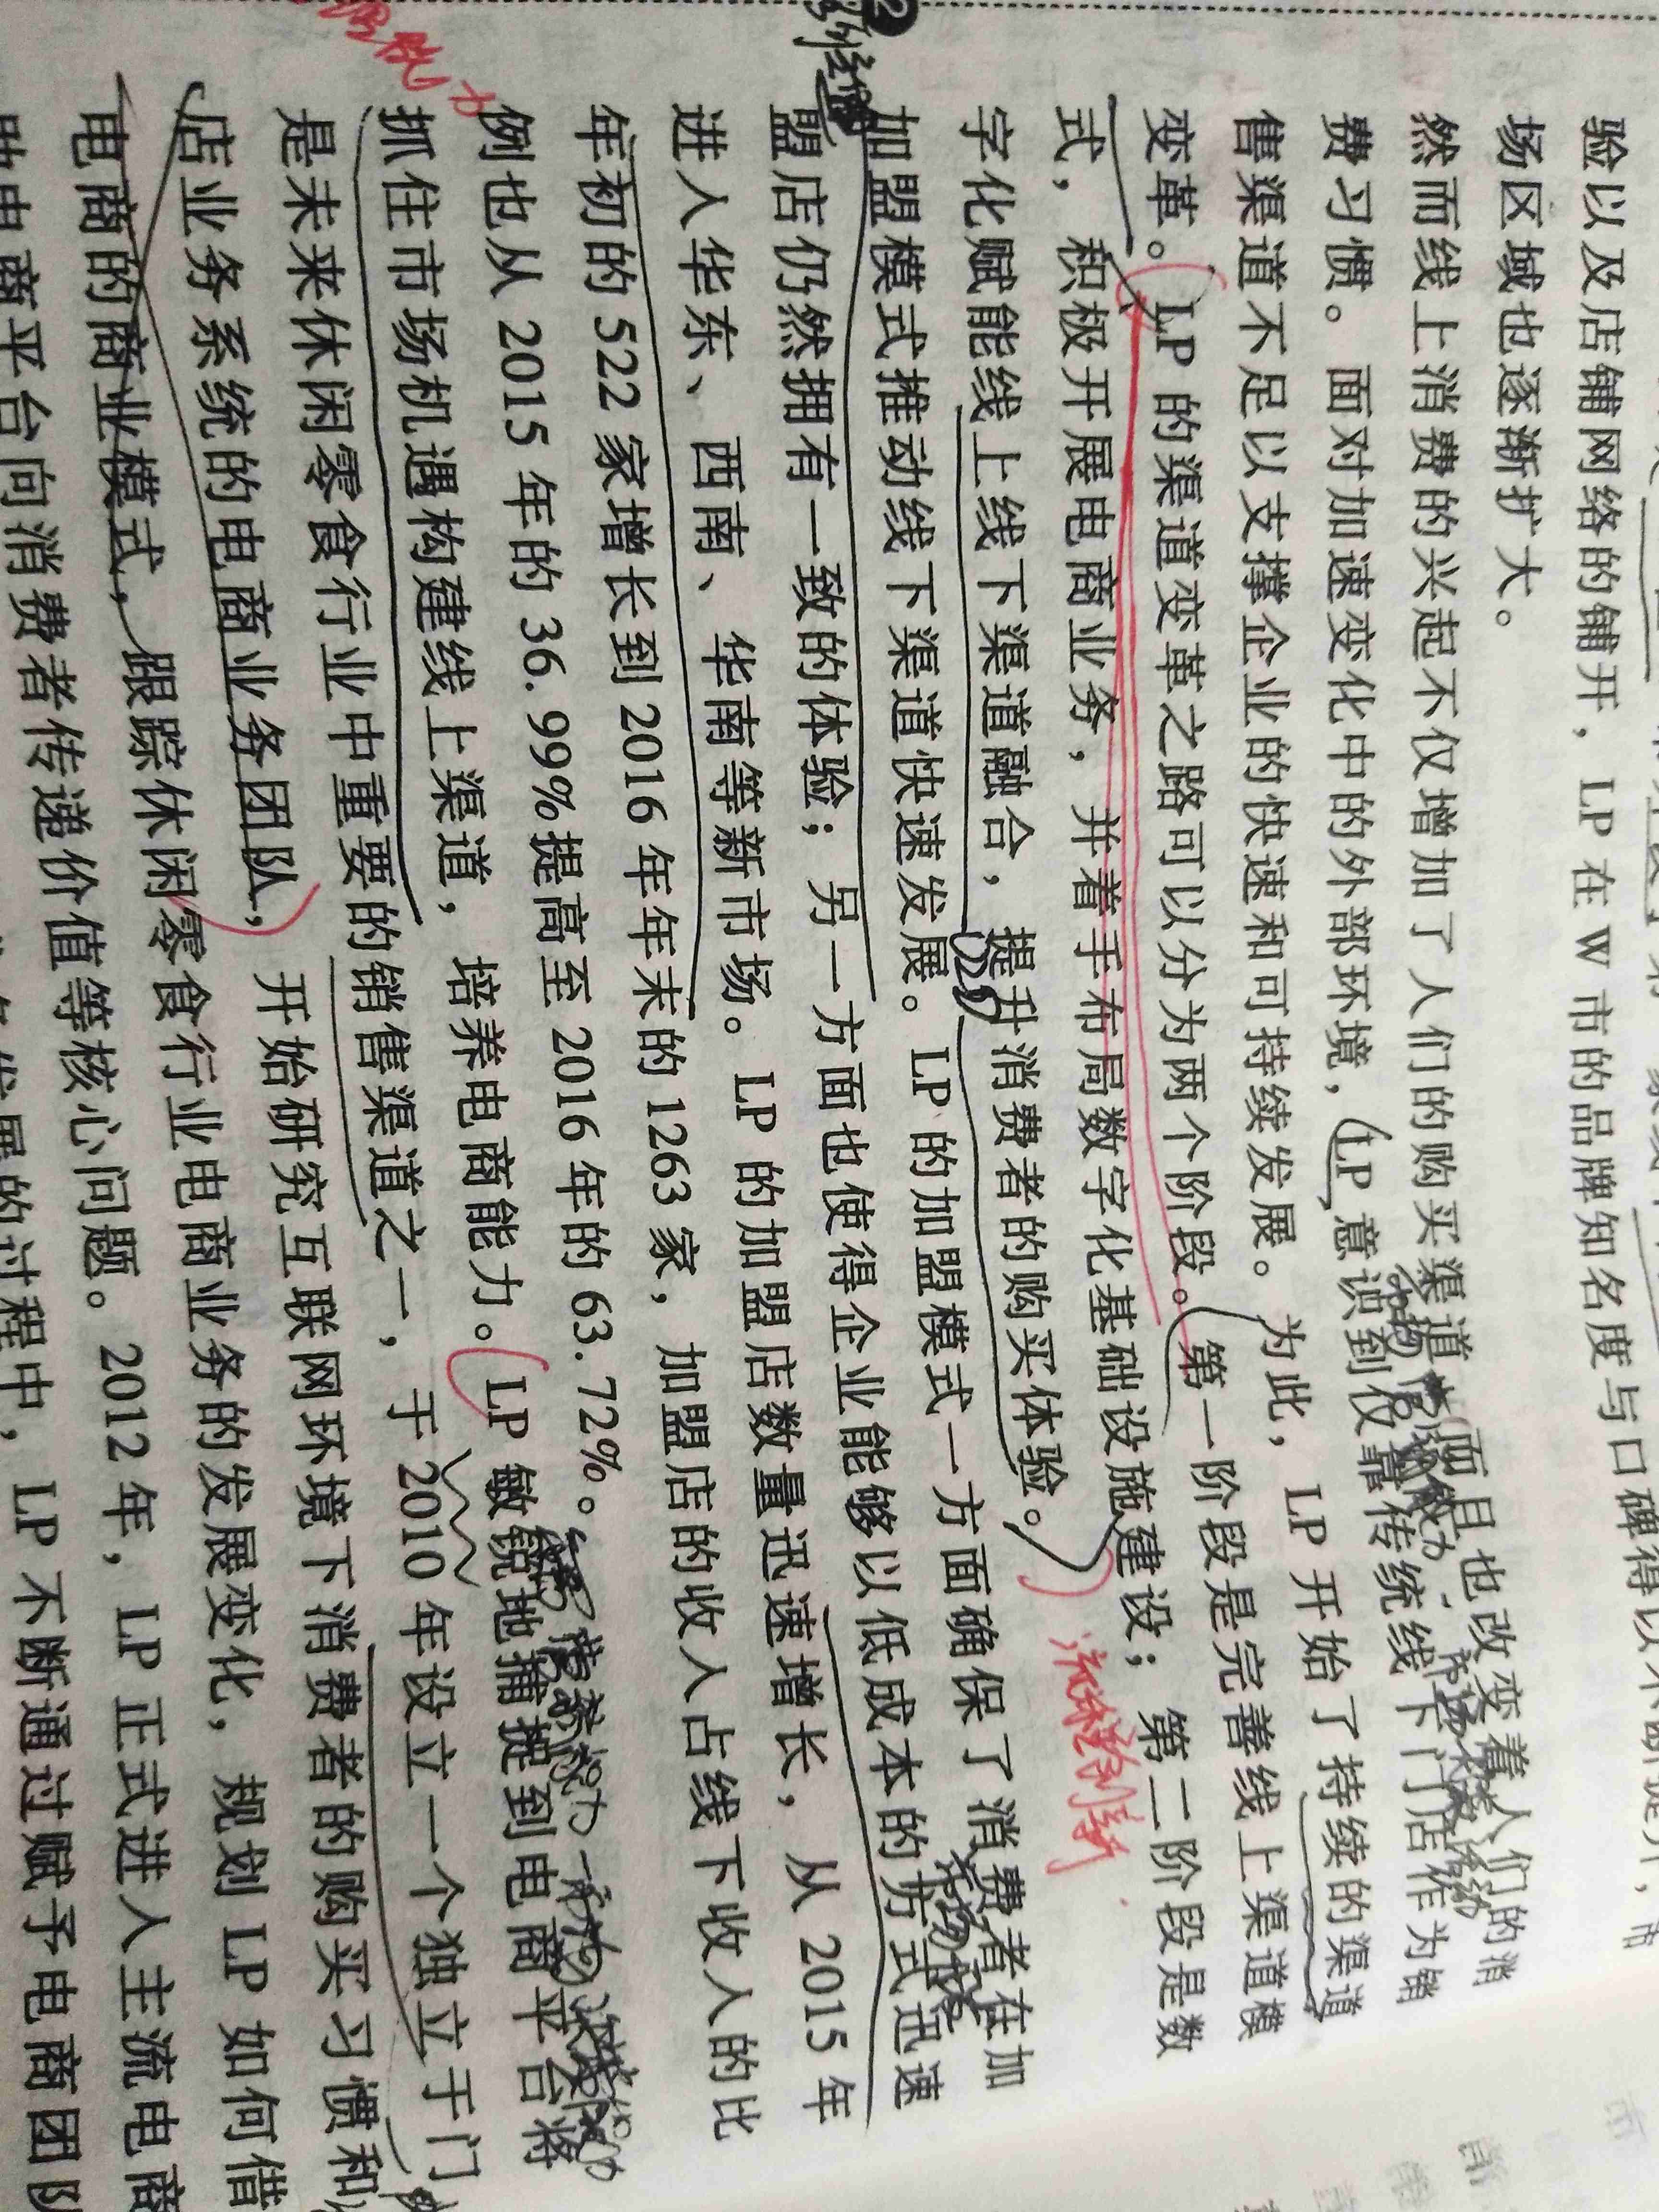 验以及店铺网络的铺开，LP 在 W 市的品牌知名度与口碑得以不断提升，市
场区域也逐渐扩大。
然而线上消费的兴起不仅增加了人们的购买渠道，而且也改变着人们的消
费习惯。面对加速变化中的外部环境，LP 意识到仅靠传统线下门店作为销
售渠道不足以支撑企业的快速和可持续发展。为此，LP 开始了持续的渠道
变革。LP 的渠道变革之路可以分为两个阶段。第一阶段是完善线上渠道模
式，积极开展电商业务，并着手布局数字化基础设施建设；第二阶段是数
字化赋能线上线下渠道融合，提升消费者的购买体验。
流程创新
加盟模式推动线下渠道快速发展。LP 的加盟模式一方面确保了消费者在加
盟店仍然拥有一致的体验；另一方面也使得企业能够以低成本的方式迅速
进入华东、西南、华南等新市场。LP 的加盟店数量迅速增长，从 2015 年
年初的 522 家增长到 2016 年年末的 1263 家，加盟店的收入占线下收入的比
例也从 2015 年的 36.99%提高至 2016 年的 63.72%。LP 敏锐地捕捉到电商平台将
抓住市场机遇构建线上渠道，培养电商能力。
是未来休闲零食行业中重要的销售渠道之一，于 2010 年设立一个独立于门
店业务系统的电商业务团队，开始研究互联网环境下消费者的购买习惯和
电商的商业模式，跟踪休闲零食行业电商业务的发展变化，规划 LP 如何借
助电商平台向消费者传递价值等核心问题。2012 年，LP 正式进入主流电商
发展的过程中，LP 不断通过赋予电商团队